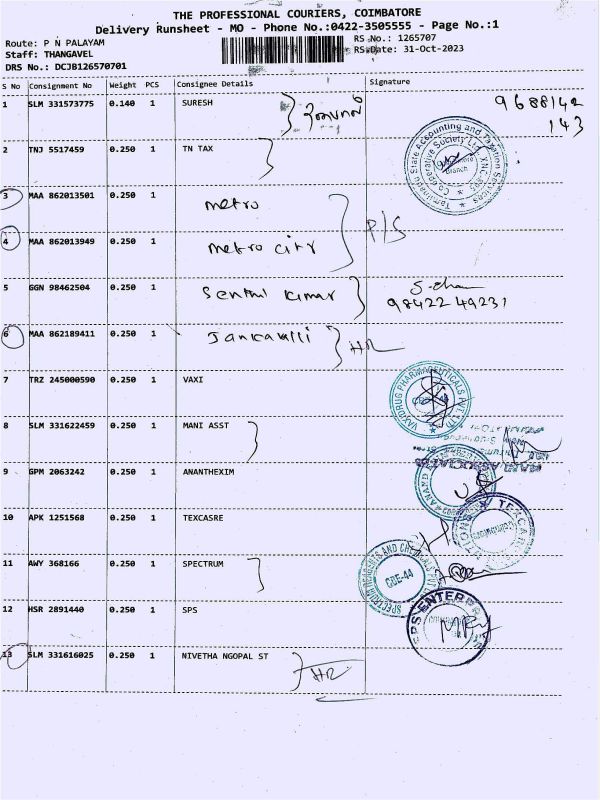 THE PROFESSIONAL COURIERS, COIMBATORE
Delivery Runsheet - MO - Phone No.:0422-3505555 - Page No.:1
Route: P N PALAYAM
RS No.: 1265707
Staff: THANGAVEL
RS Date: 31-Oct-2023
DRS No.: DCJB126570701
S No Consignment No Weight PCS Consignee Details Signature
1 SLM 331573775 0.140 1 SURESH 9688142
143
2 TNJ 5517459 0.250 1 TN TAX
Tamilnadu State Accounting and Taxation Services
Co-operative Society Ltd.
Branch
3 MAA 862013501 0.250 1 metro
P/S
4 MAA 862013949 0.250 1 metro city
5 GGN 98462504 0.250 1 Senthil Kumar
98422 49231
6 MAA 862189411 0.250 1 HR
7 TRZ 245000590 0.250 1 VAXI
VAXIDRUG PHARMACEUTICALS
8 SLM 331622459 0.250 1 MANI ASST
9 GPM 2063242 0.250 1 ANANTHEXIM
10 APK 1251568 0.250 1 TEXCASRE
11 AWY 368166 0.250 1 SPECTRUM
SPECTRUM REAGENTS AND CHEMICALS PVT
CBE-44
12 HSR 2891440 0.250 1 SPS
SPS ENTERPR
13 SLM 331616025 0.250 1 NIVETHA NGOPAL ST HR